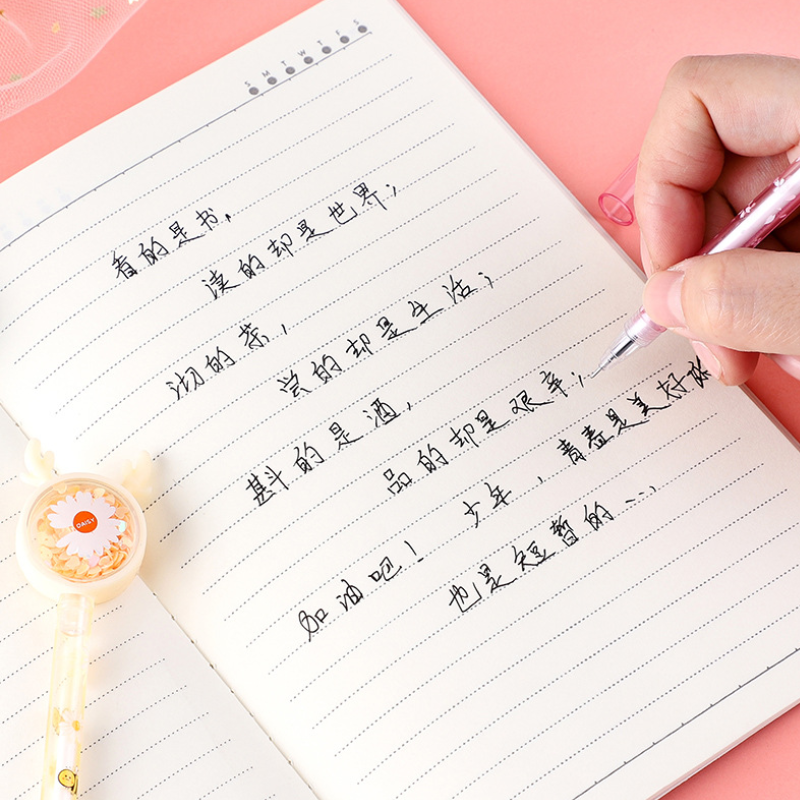 S M T W T F S
看的是书,
读的却是世界;
沏的茶,
尝的却是生活;
斟的是酒,
品的却是艰辛;
加油吧! 少年,青春是美好
也是短暂的……
DAISY